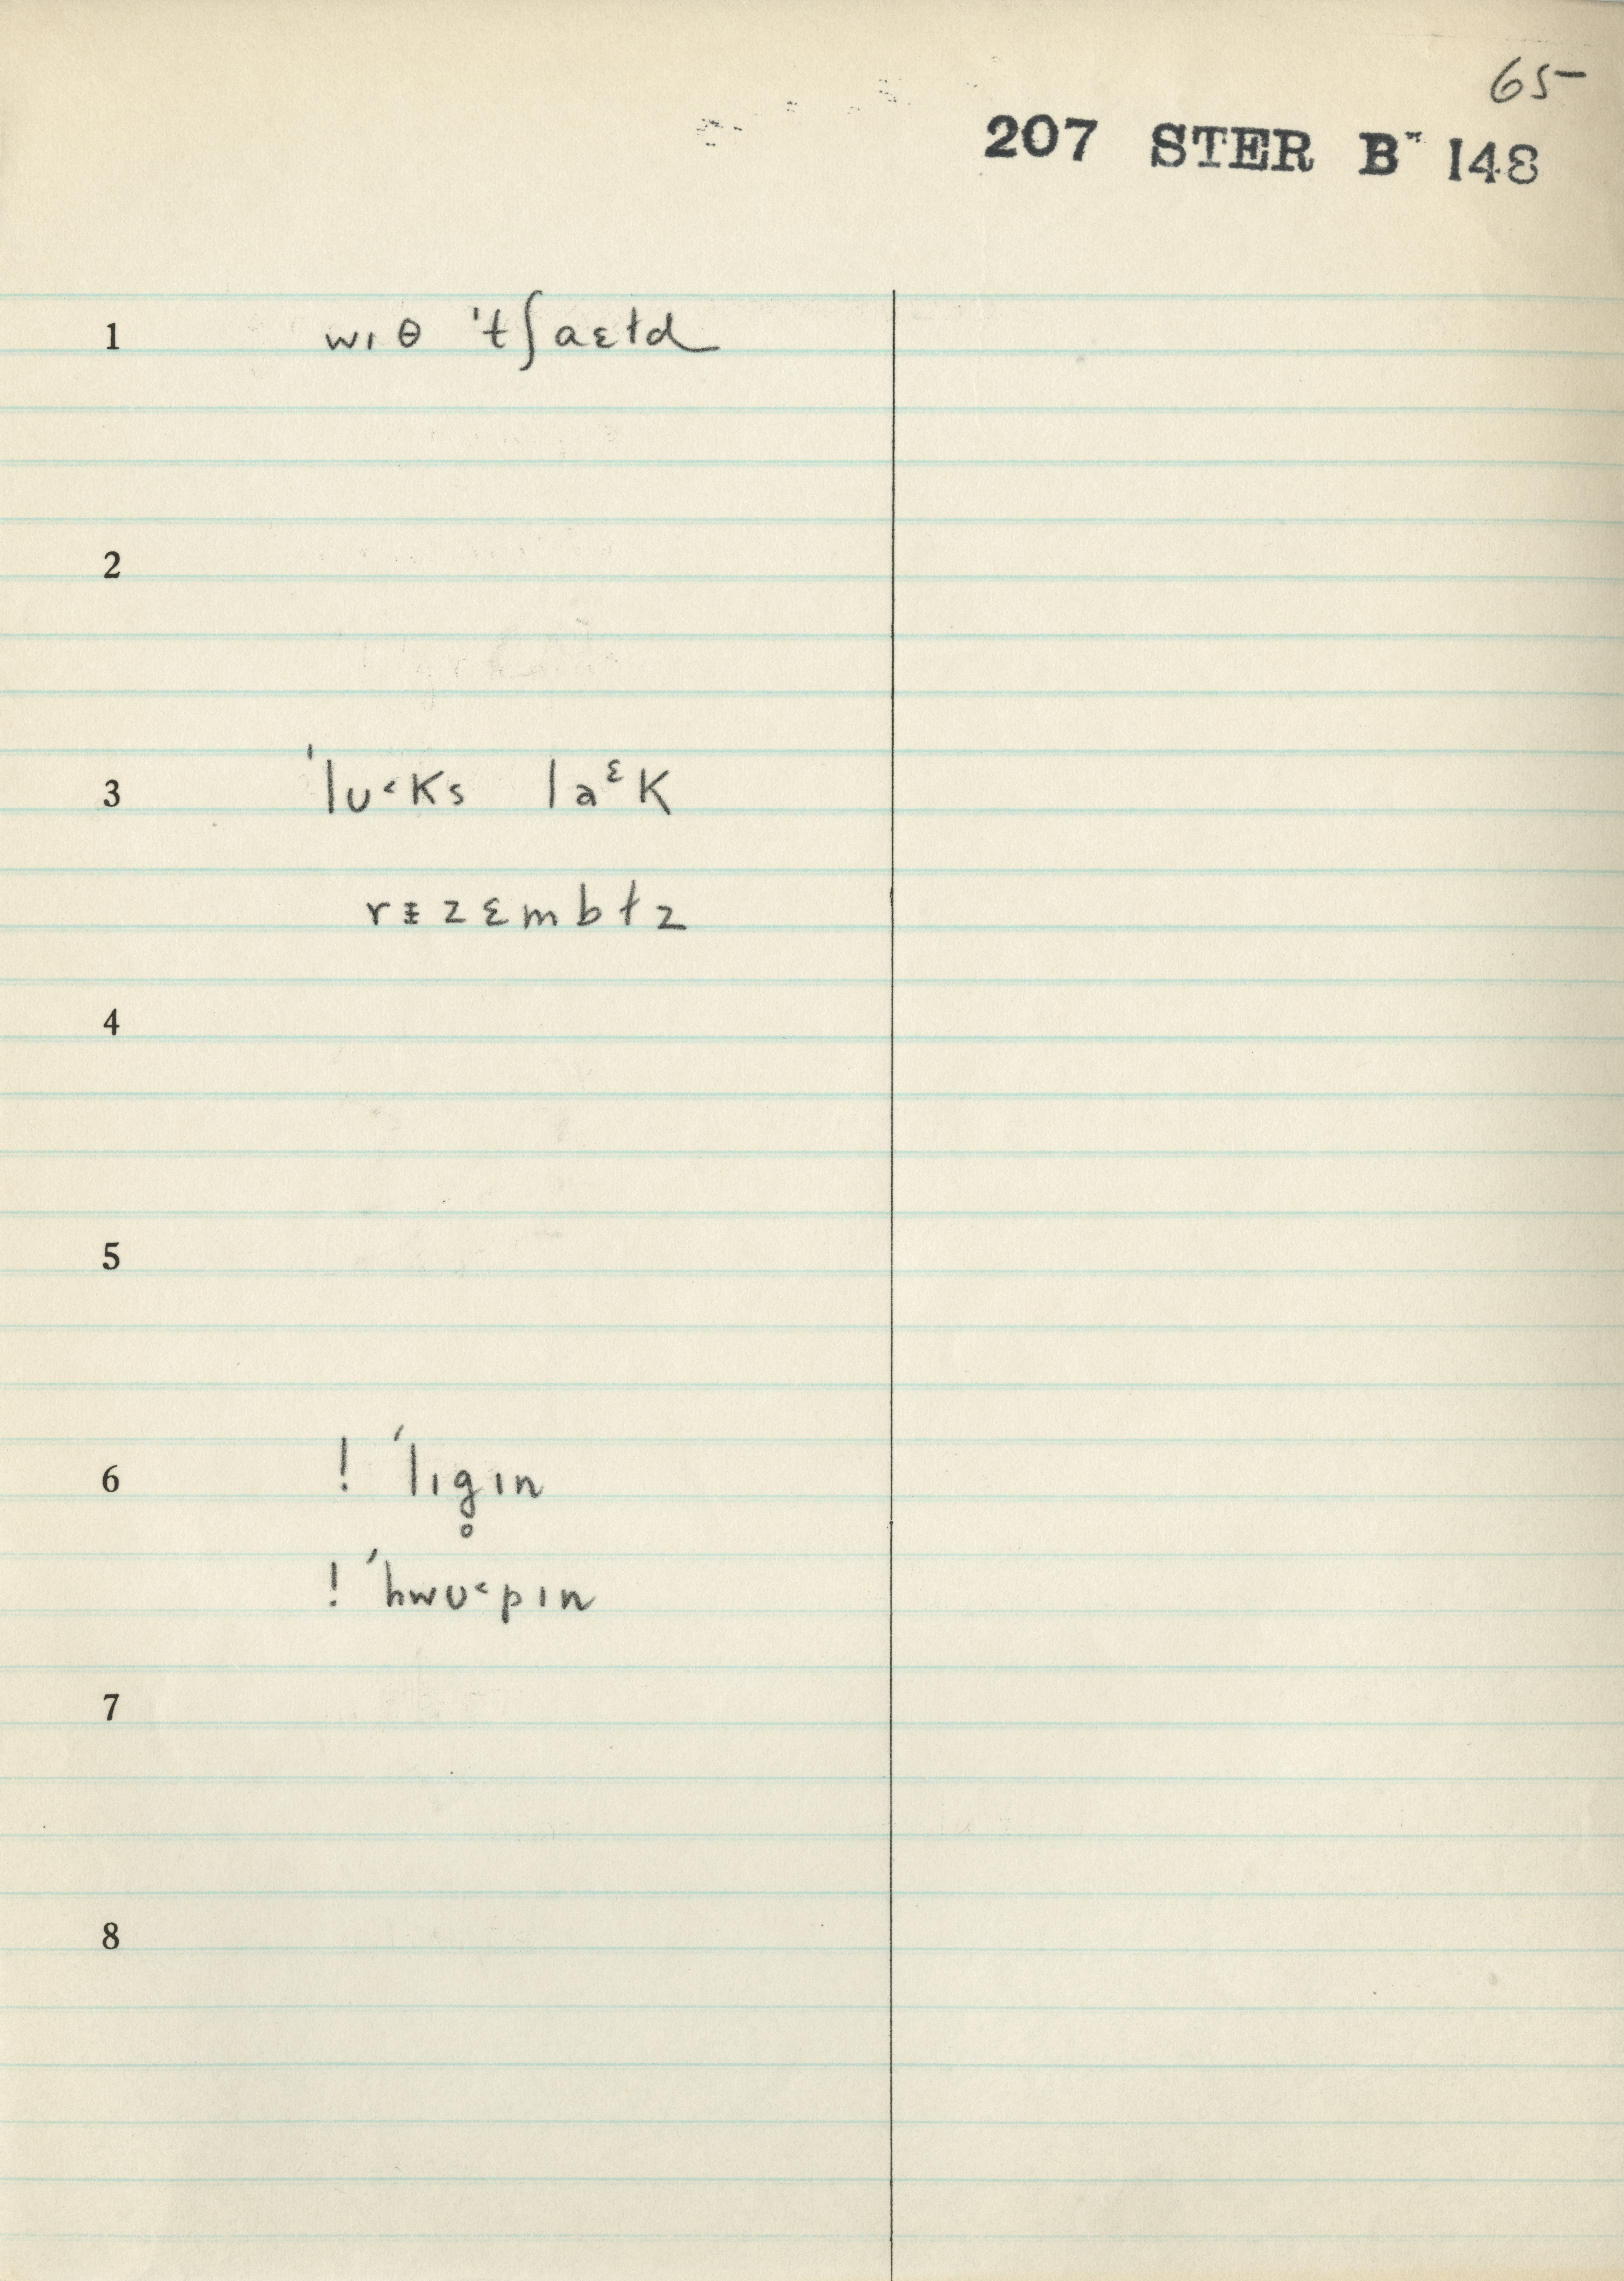 65
207 STER B 148
1 wɪ θ 'tʃaɛɫd
2
3 'lʊ˂ks laᵋk
rɪ̵zɛmbɫz
4
5
6 ! 'lɪg̥ɪn
! 'hwʊ˂pɪn
7
8